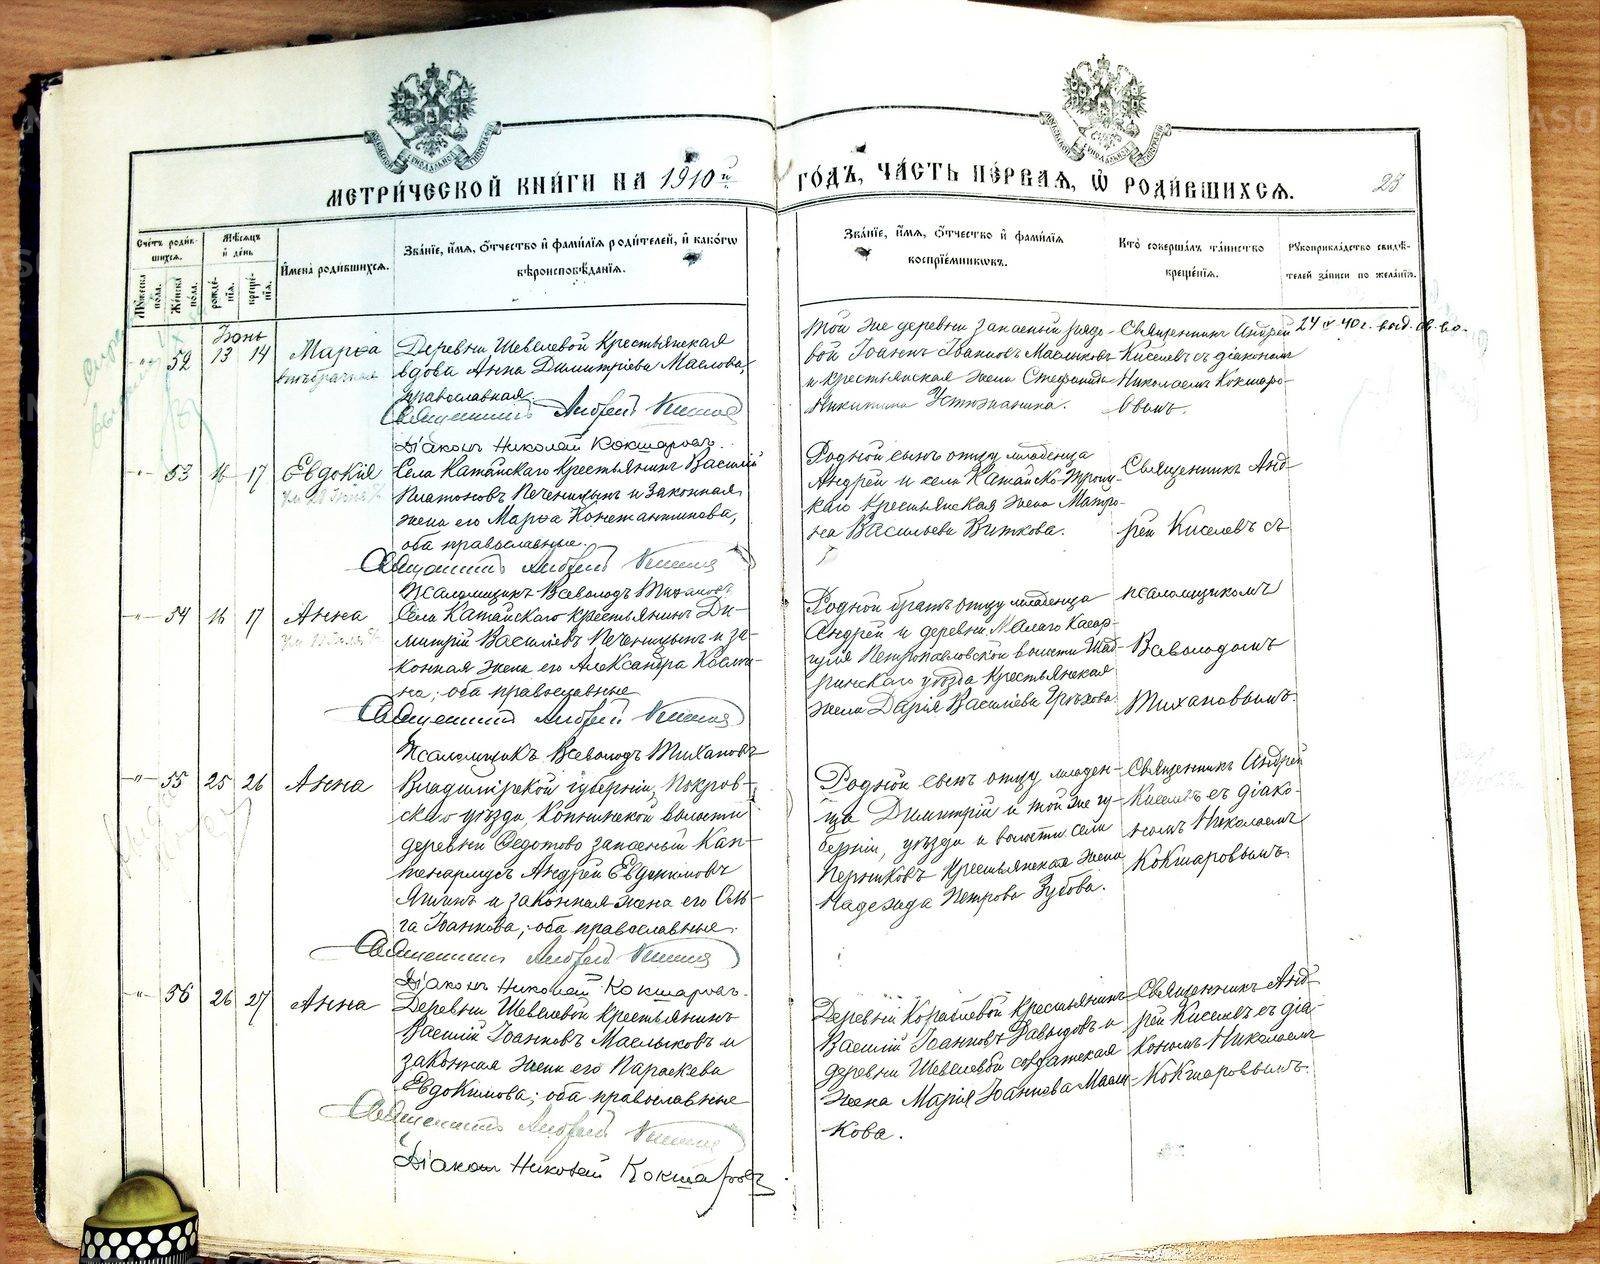 МЕТРИ́ЧЕСКОЙ КНИ́ГИ НА 1910 й
ГО́ДЪ, ЧА́СТЬ ПЕ́РВАЯ, Ѿ РОДИ́ВШИХСЯ.
23
Сче́тъ роди́в-
шихся.
Му́жеска
по́ла.
Же́нска
по́ла.
Мѣ́сяцъ
и̑ де́нь
рожде́-
нія.
креще́-
нія.
И̑мена̀ роди́вшихся.
Зва́нїе, и́мя, о́тчество и̑ фами́лїя роди́телей, и̑ како́гѡ
вѣроисповѣ́данїя.
Зва́нїе, и́мя, о́тчество и̑ фами́лїя
воспрїе́мниковъ.
Кто̀ соверша́лъ та́инство
креще́нїя.
Рукоприкла́дство свидѣ́-
телей за́писи по жела́нїю.
Іюнь
52 13 14 Марѳа
внѣбрачная
Деревни Шевелевой Крестьянская
вдова Анна Димитріева Маслова,
православная.
Священникъ Андрей Киселев
Діаконъ Николай Кокшаровъ.
Той же деревни запасный рядо-
вой Іоаннъ Іоанновъ Маслыковъ
и крестьянская жена Стефанида
Никитина Устюжанина.
Священникъ Андрей
Киселевъ съ діакономъ
Николаемъ Кокшаро-
вымъ.
53 16 17 Евдокія
Села Катайскаго крестьянинъ Василій
Платоновъ Печеницынъ и законная
жена его Марѳа Константинова,
оба православные.
Священникъ Андрей Киселев
Псаломщикъ Всеволодъ Тихановъ
Родной сынъ отцу младенца
Андрей и села Катайско-Троиц-
каго крестьянская жена Матро-
на Васильева Виткова.
Священникъ Анд-
рей Киселевъ съ
54 16 17 Анна
Села Катайскаго крестьянинъ Ди-
митрій Василіевъ Печеницынъ и за-
конная жена его Александра Косми-
на; оба православные
Священникъ Андрей Киселев
Псаломщикъ Всеволодъ Тихановъ
Родной братъ отцу младенца
Андрей и деревни Малаго Касар-
гуля Петропавловской волости Шад-
ринскаго уѣзда крестьянская
жена Дарія Василіева Грѣхова.
псаломщикомъ
Всеволодомъ
Тихановымъ.
55 25 26 Анна
Владимірской губерніи, Покров-
скаго уѣзда, Копнинской волости
деревни Ѳедотово запасный Кап-
тенармусъ Андрей Евдокимовъ
и законная жена его Оль-
га Іоаннова; оба православные.
Священникъ Андрей Киселев
Діаконъ Николай Кокшаровъ.
Родной сынъ отцу младен-
ца Димитрій и той же гу-
берніи, уѣзда и волости села
крестьянская жена
Надежда Петрова Зубова.
Священникъ Андрей
Киселевъ съ діако-
номъ Николаемъ
Кокшаровымъ.
56 26 27 Анна
Деревни Шевелевой крестьянинъ
Василій Іоанновъ Маслыковъ и
законная жена его Параскева
Евдокимова; оба православные
Священникъ Андрей Киселев
Діаконъ Николай Кокшаровъ
Деревни Кораблевой крестьянинъ
Василій Іоанновъ Давыдовъ и
деревни Шевелевой солдатская
жена Марія Іоаннова Маслы-
кова.
Священникъ Анд-
рей Киселевъ съ діа-
кономъ Николаемъ
Кокшаровымъ.